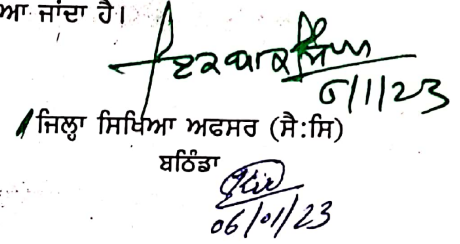 ਆ ਜਾਂਦਾ ਹੈ।
6/1/23
ਜਿਲ੍ਹਾ ਸਿਖਿਆ ਅਫਸਰ (ਸੈ:ਸਿ)
ਬਠਿੰਡਾ
06/01/23